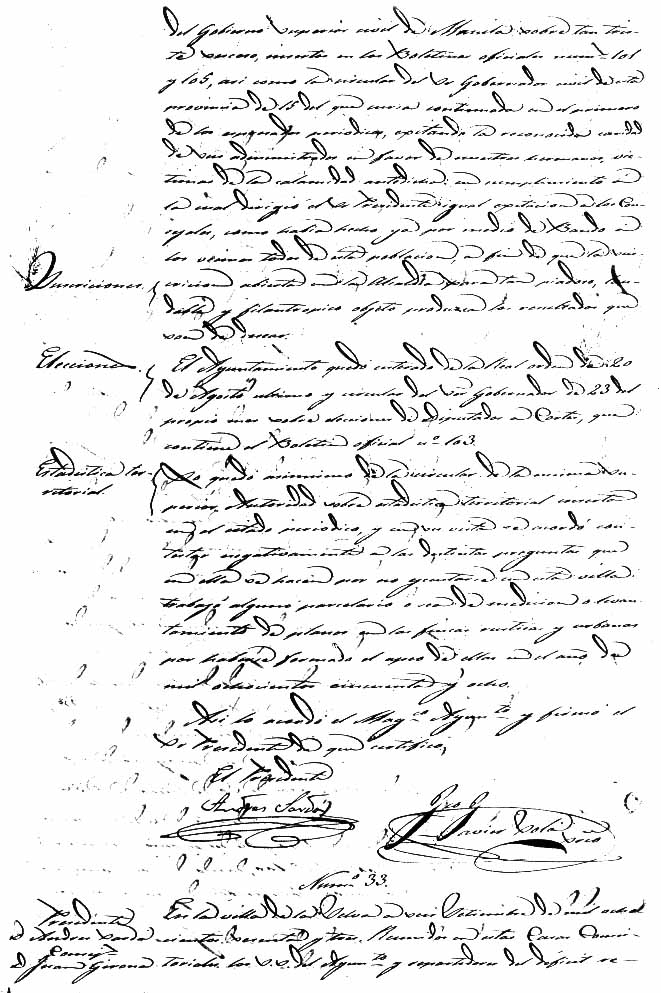 del Gobierno superior civil de Manila sobre tan tris-
te suceso, insertos en los Boletines oficiales num.s 101
y 105, asi como la circular del Sr Gobernador civil de esta
provincia de 15 del que cursa continuada en el primero
de los expresados periodicos, excitando la reconocida caridad
de sus administrados en favor de nuestros hermanos, vic-
timas de la calamidad antedicha: en cumplimiento de
la cual dirigió el Sr Presidente igual excitacion a los Con-
cejales, como habia hecho ya por medio de Bando a
los vecinos todos de esta poblacion, a fin de que la sus-
Suscriciones. cricion abierta en la Alcaldia para tan piadoso,
y filantropico objeto produzca los resultados que
son de desear.
Elecciones El Ayuntamiento quedó enterado de la Real orden de 20
de Agosto ultimo y circular del Sor Gobernador de 23 del
propio mes sobre elecciones de Diputados a Cortes, que
contiene el Boletin oficial nº 103.
Estadistica ter- Lo quedó asimismo de la circular de la misma su-
ritorial. perior Autoridad sobre estadistica territorial inserta
en el citado periodico, y en su vista se acordó con-
testar negativamente a las distintas preguntas que
en ella se hacen por no existir en esta villa
trabajo alguno parcelario o sea de medicion o levan-
tamiento de planos en las fincas rusticas y urbanas
por haberse formado el apeo de ellas en el año de
mil ochocientos cincuenta y ocho.
Asi lo acordó el Mag.co Ayun.to y firmó el
Sr Presidente de que certifico,
El Presidente
Andres Sardá
Fco J
Javier Solá
Srio
Num.o 33.
Presidente En la villa de la Selva a seis Setiembre de mil ochoc-
D Andres Sarda cientos sesenta y tres. Reunidos en estas Casas Consis-
Concej.s
D Juan Girona toriales los S.S. del Ayun.to y repartidores del deficit re-